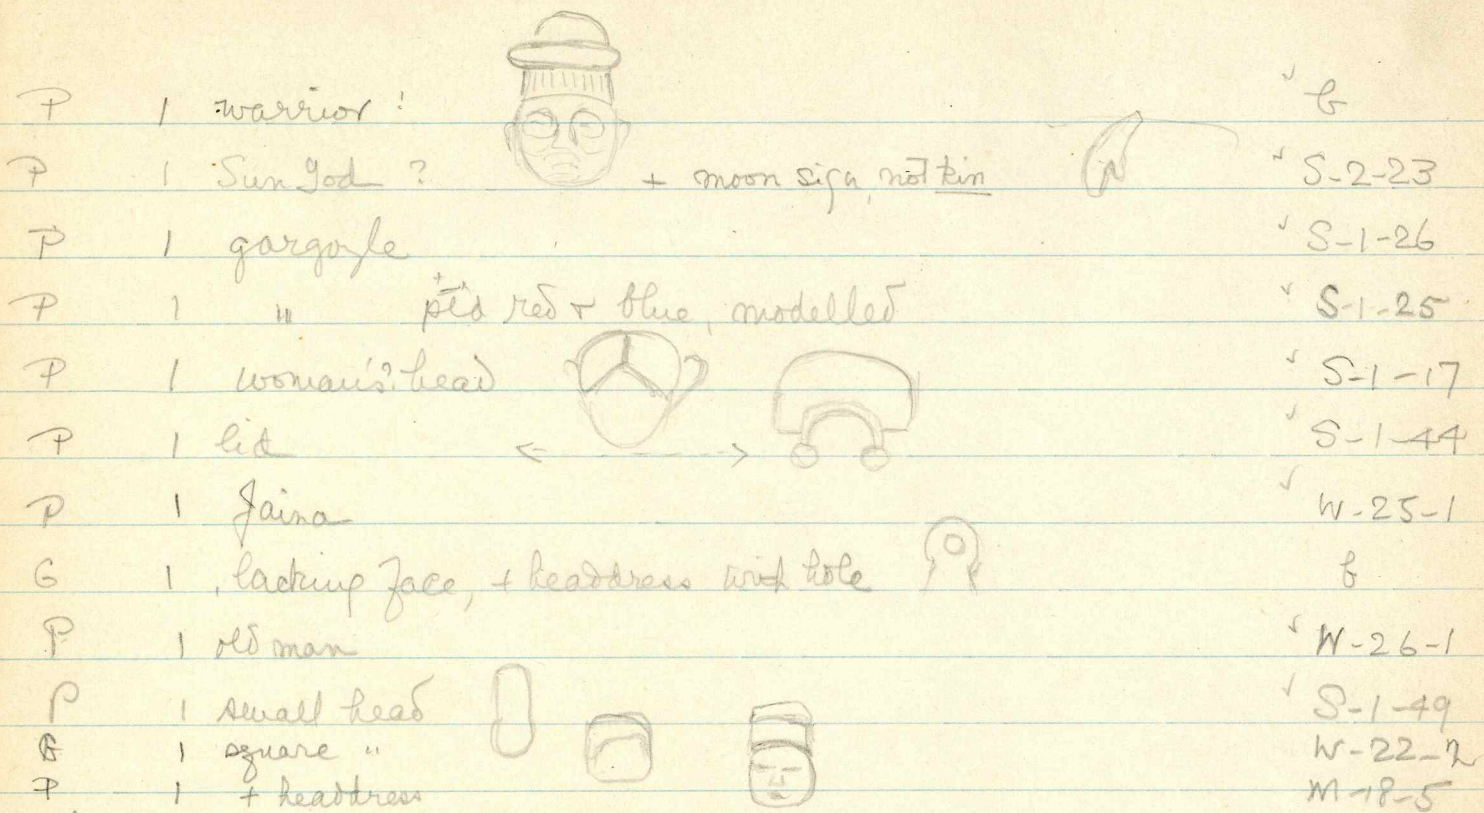 P 1 warrior? ✓ b
P 1 Sun God ? + moon sign, not kin ✓ S-2-23
P 1 gargoyle ✓ S-1-26
P 1 " ptd red + blue, modelled ✓ S-1-25
P 1 woman's? head ✓ S-1-17
P 1 lid ✓ S-1-44
P 1 Jaina ✓ W-25-1
G 1 lacking face, + headdress with hole b
P 1 old man ✓ W-26-1
P 1 small head ✓ S-1-49
G 1 square " W-22-2
P 1 + headdress M-18-5